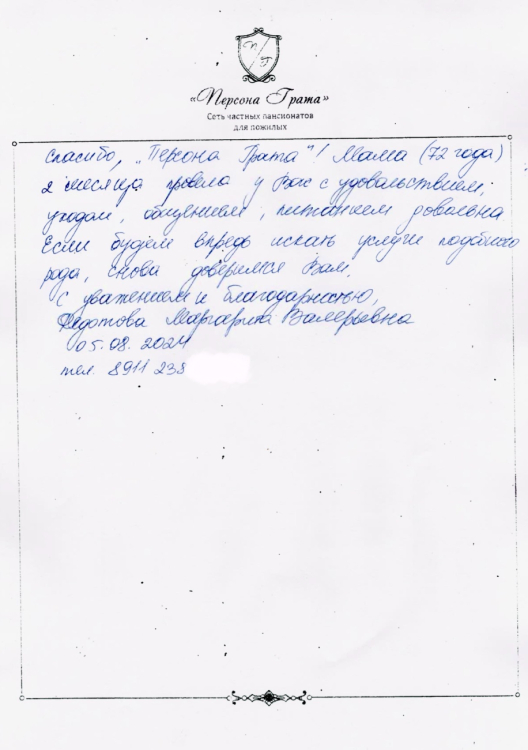 П Г
«Персона Грата»
Сеть частных пансионатов
для пожилых
Спасибо, „Персона Грата"! Мама (72 года)
2 месяца провела у Вас с удовольствием,
уходом, общением, питанием довольна
Если будем впредь искать услуги подобного
рода, снова доверимся Вам.
С уважением и благодарностью,
Федотова Маргарита Валерьевна
05.08.2024
тел. 8911 238